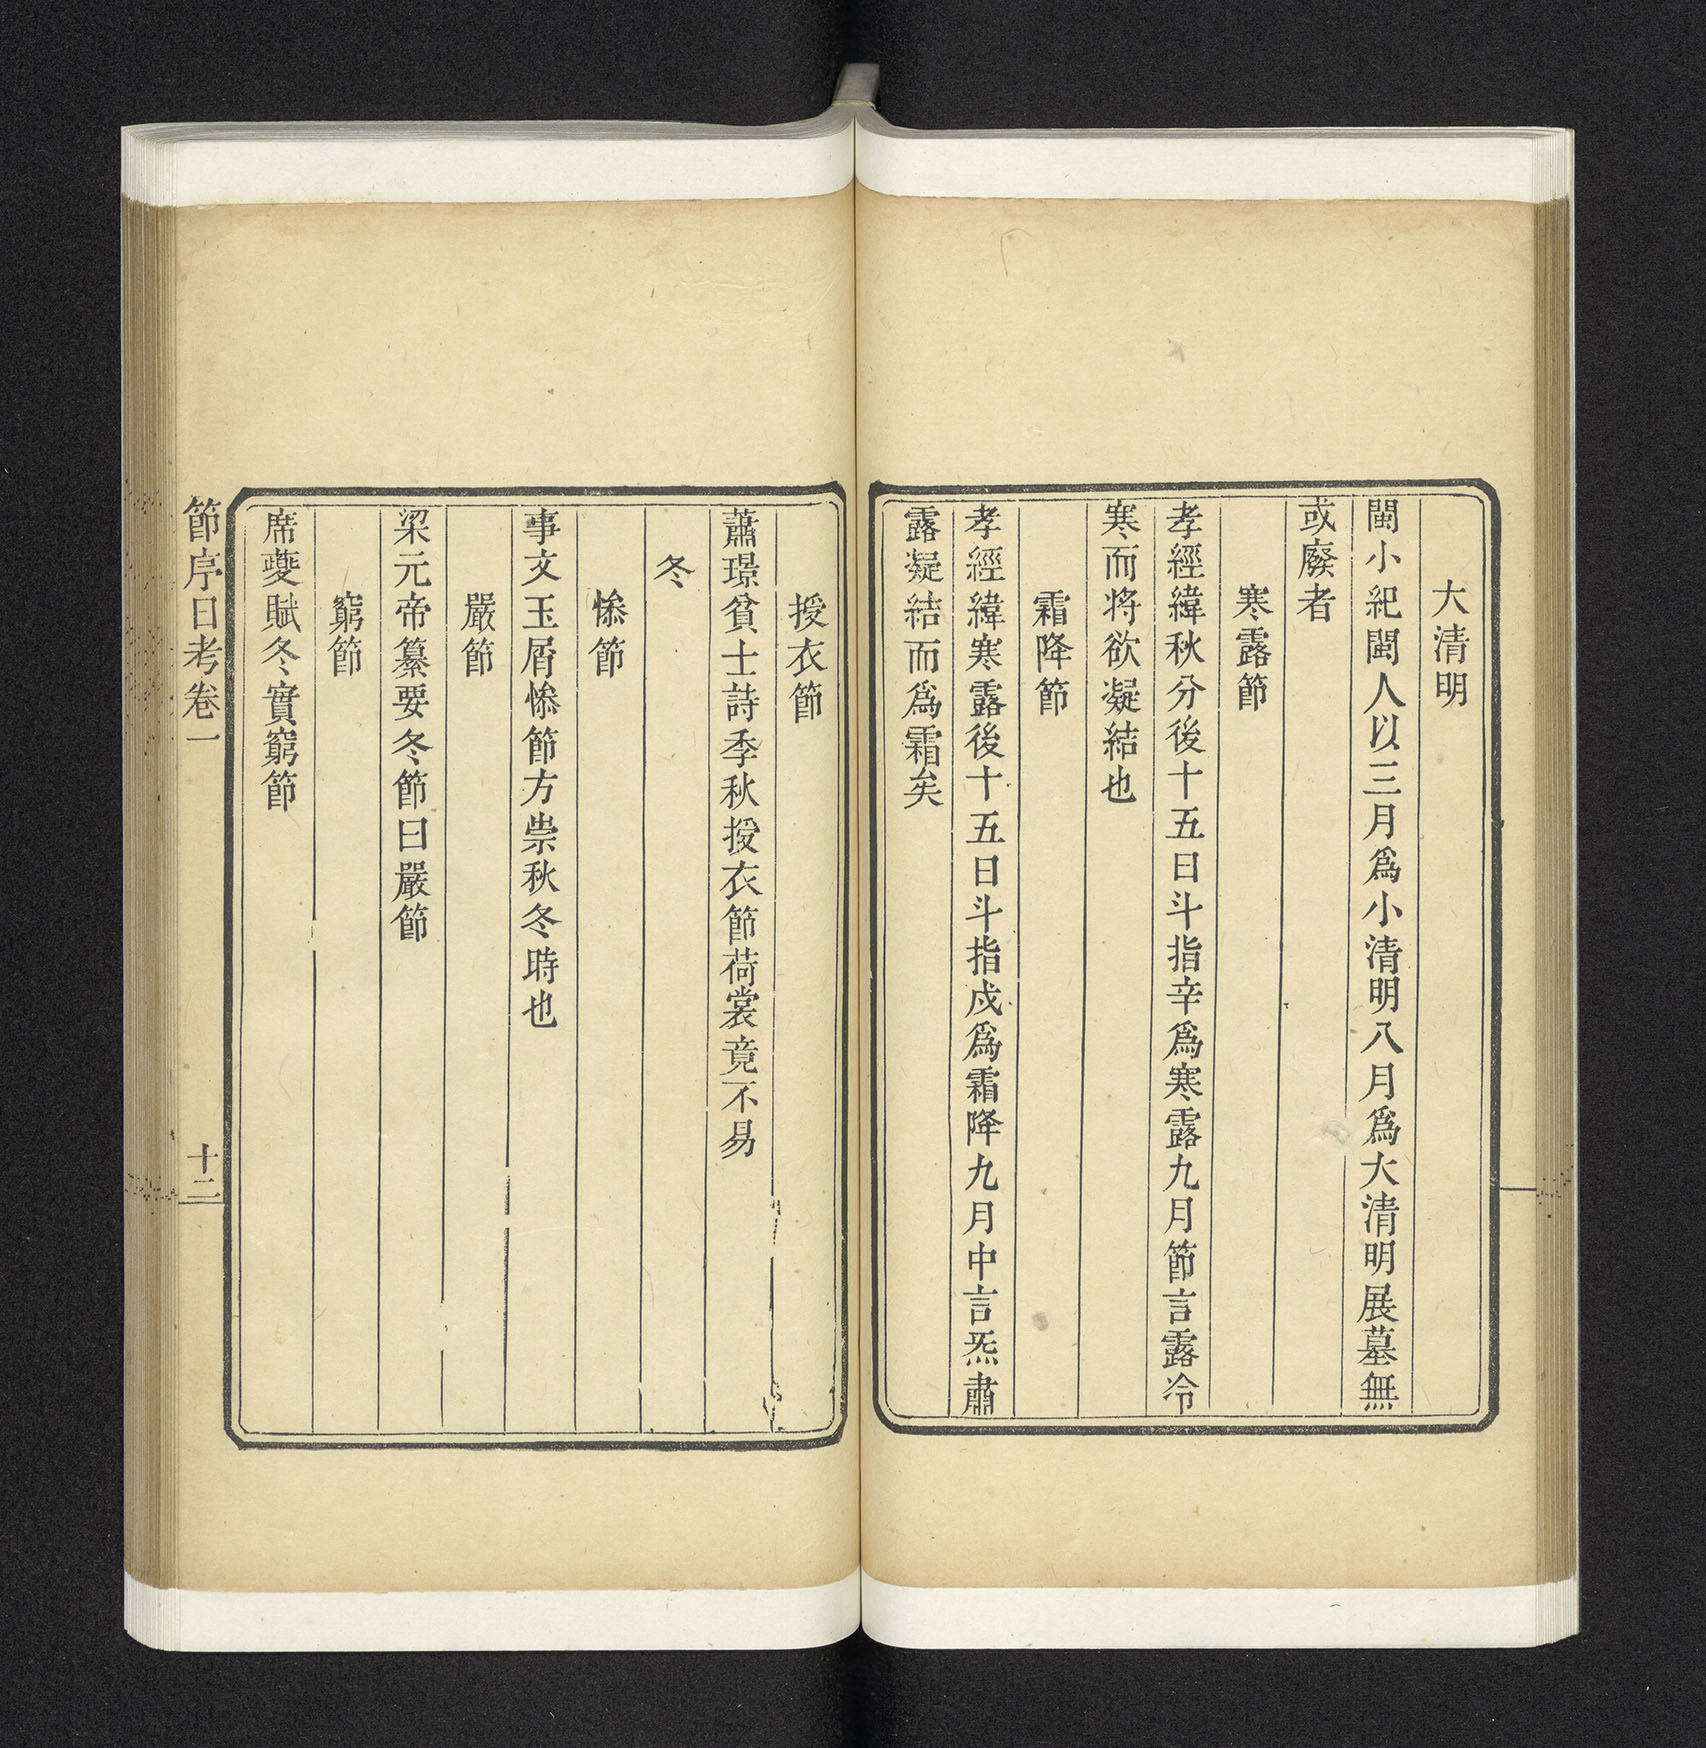 大清明
閩小紀閩人以三月爲小清明八月爲大清明展墓無
或廢者
寒露節
孝經緯秋分後十五日斗指辛爲寒露九月節言露冷
寒而将欲凝結也
霜降節
孝經緯寒露後十五日斗指戍爲霜降九月中言炁肅
露凝結而爲霜矣
授衣節
蕭璟貧士詩季秋授衣節荷裳竟不易
冬
惨節
事文玉屑惨節方祟秋冬時也
嚴節
梁元帝纂要冬節曰嚴節
窮節
席夔賦冬實窮節
節序日考卷一
十二